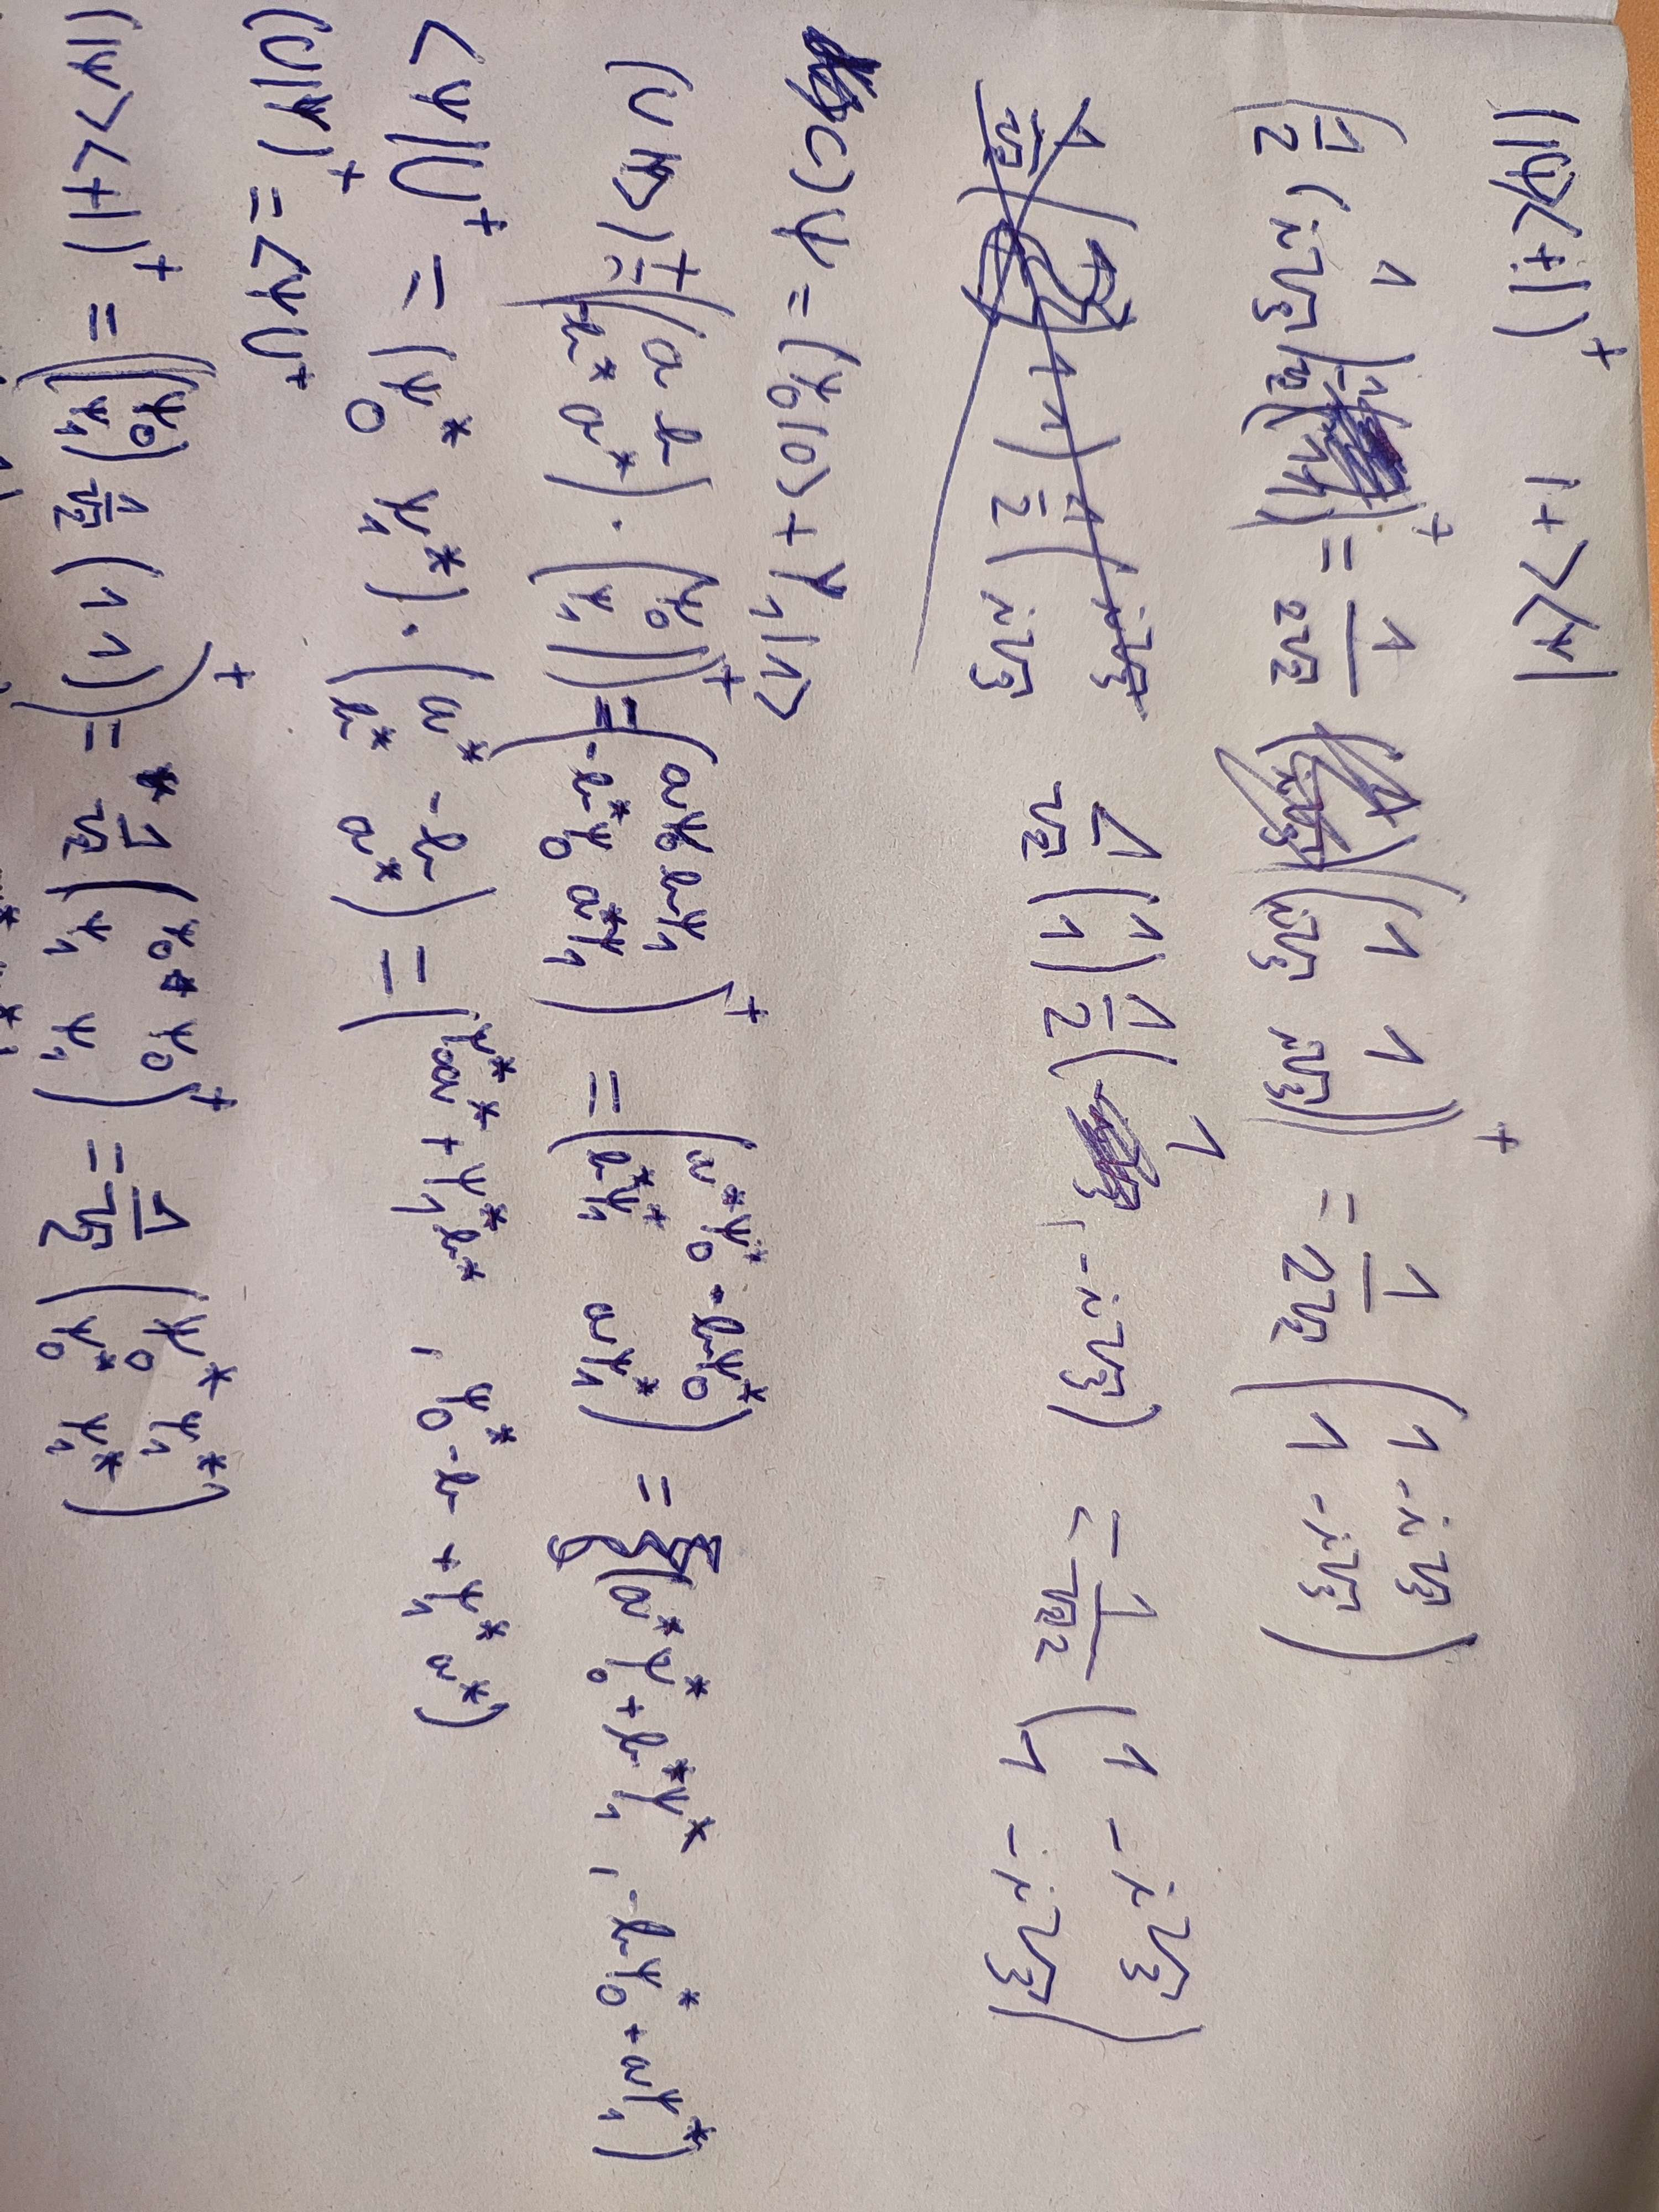 (|ψ><+|)† |+><ψ|
(1/2, i√3/2 1/√2 (1 1))† = 1/2√2 ((1 1 i√3 i√3))† = 1/2√2 (1 -i√3 1 -i√3)
1/√2 (1 1) 1/2 (1, -i√3) = 1/√2 2 (1 -i√3 1 -i√3)
1/√2 ( 1 1) 1/2 ( i√3
c) ψ = (ψ₀|0> + ψ₁|1>
(U|ψ>)† = ((a b -b* a*) · (ψ₀ ψ₁))† = (aψ₀ bψ₁ -b*ψ₀ a*ψ₁)† = (a*ψ₀* -bψ₀* b*ψ₁* aψ₁*) = (a*ψ₀* + b*ψ₁*, -bψ₀* + aψ₁*)
<ψ|U† = (ψ₀* ψ₁*) · (a* -b b* a*) = (ψ₀*a* + ψ₁*b*, ψ₀*-b + ψ₁*a*)
(U|ψ)† = <ψ|U†
(|ψ><+|)† = ((ψ₀ ψ₁) 1/√2 (1 1))† = 1/√2 (ψ₀ ψ₀ ψ₁ ψ₁)† = 1/√2 (ψ₀* ψ₁* ψ₀* ψ₁*)